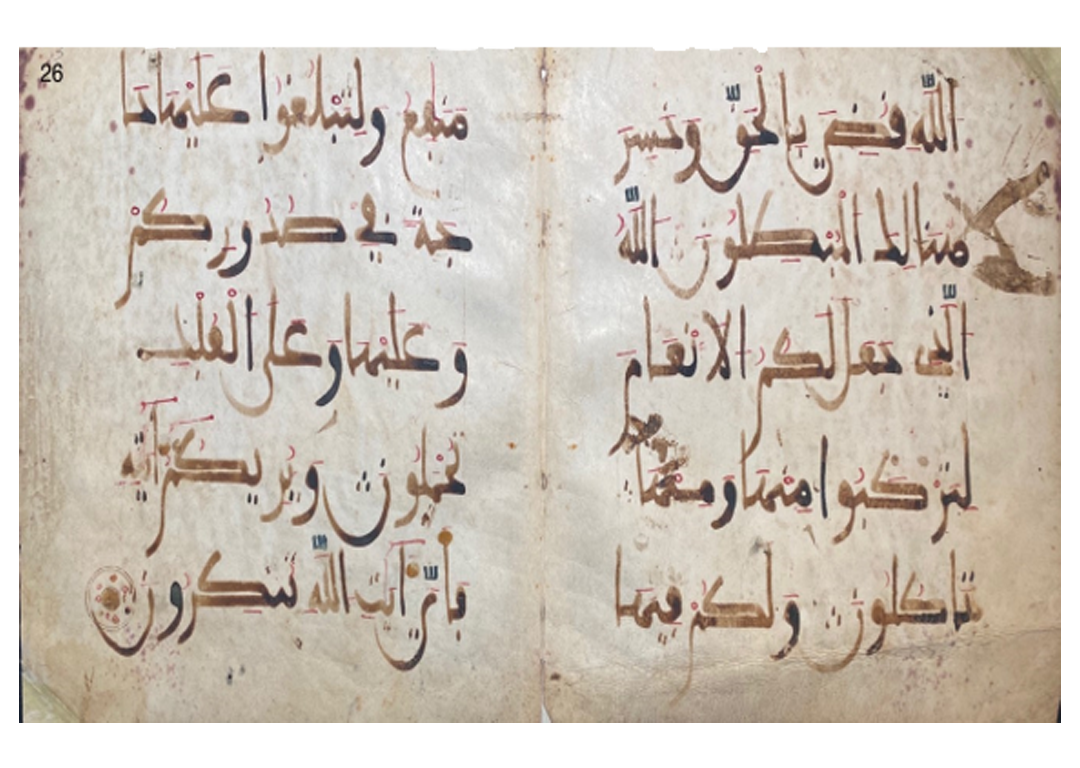 26
اللَّه قضي بالحقّ وخسر
هنالك المبطلون اللَّه
الّذي جعل لكم الانعام
لتركبوا منها ومنها
تاكلون ولكم فيها
منفع ولتبلغوا عليها حا
جة في صدوركم
وعليها وعلى الفلك
تحملون ويريكم ءايته
فأيّ ءايت اللَّه تنكرون